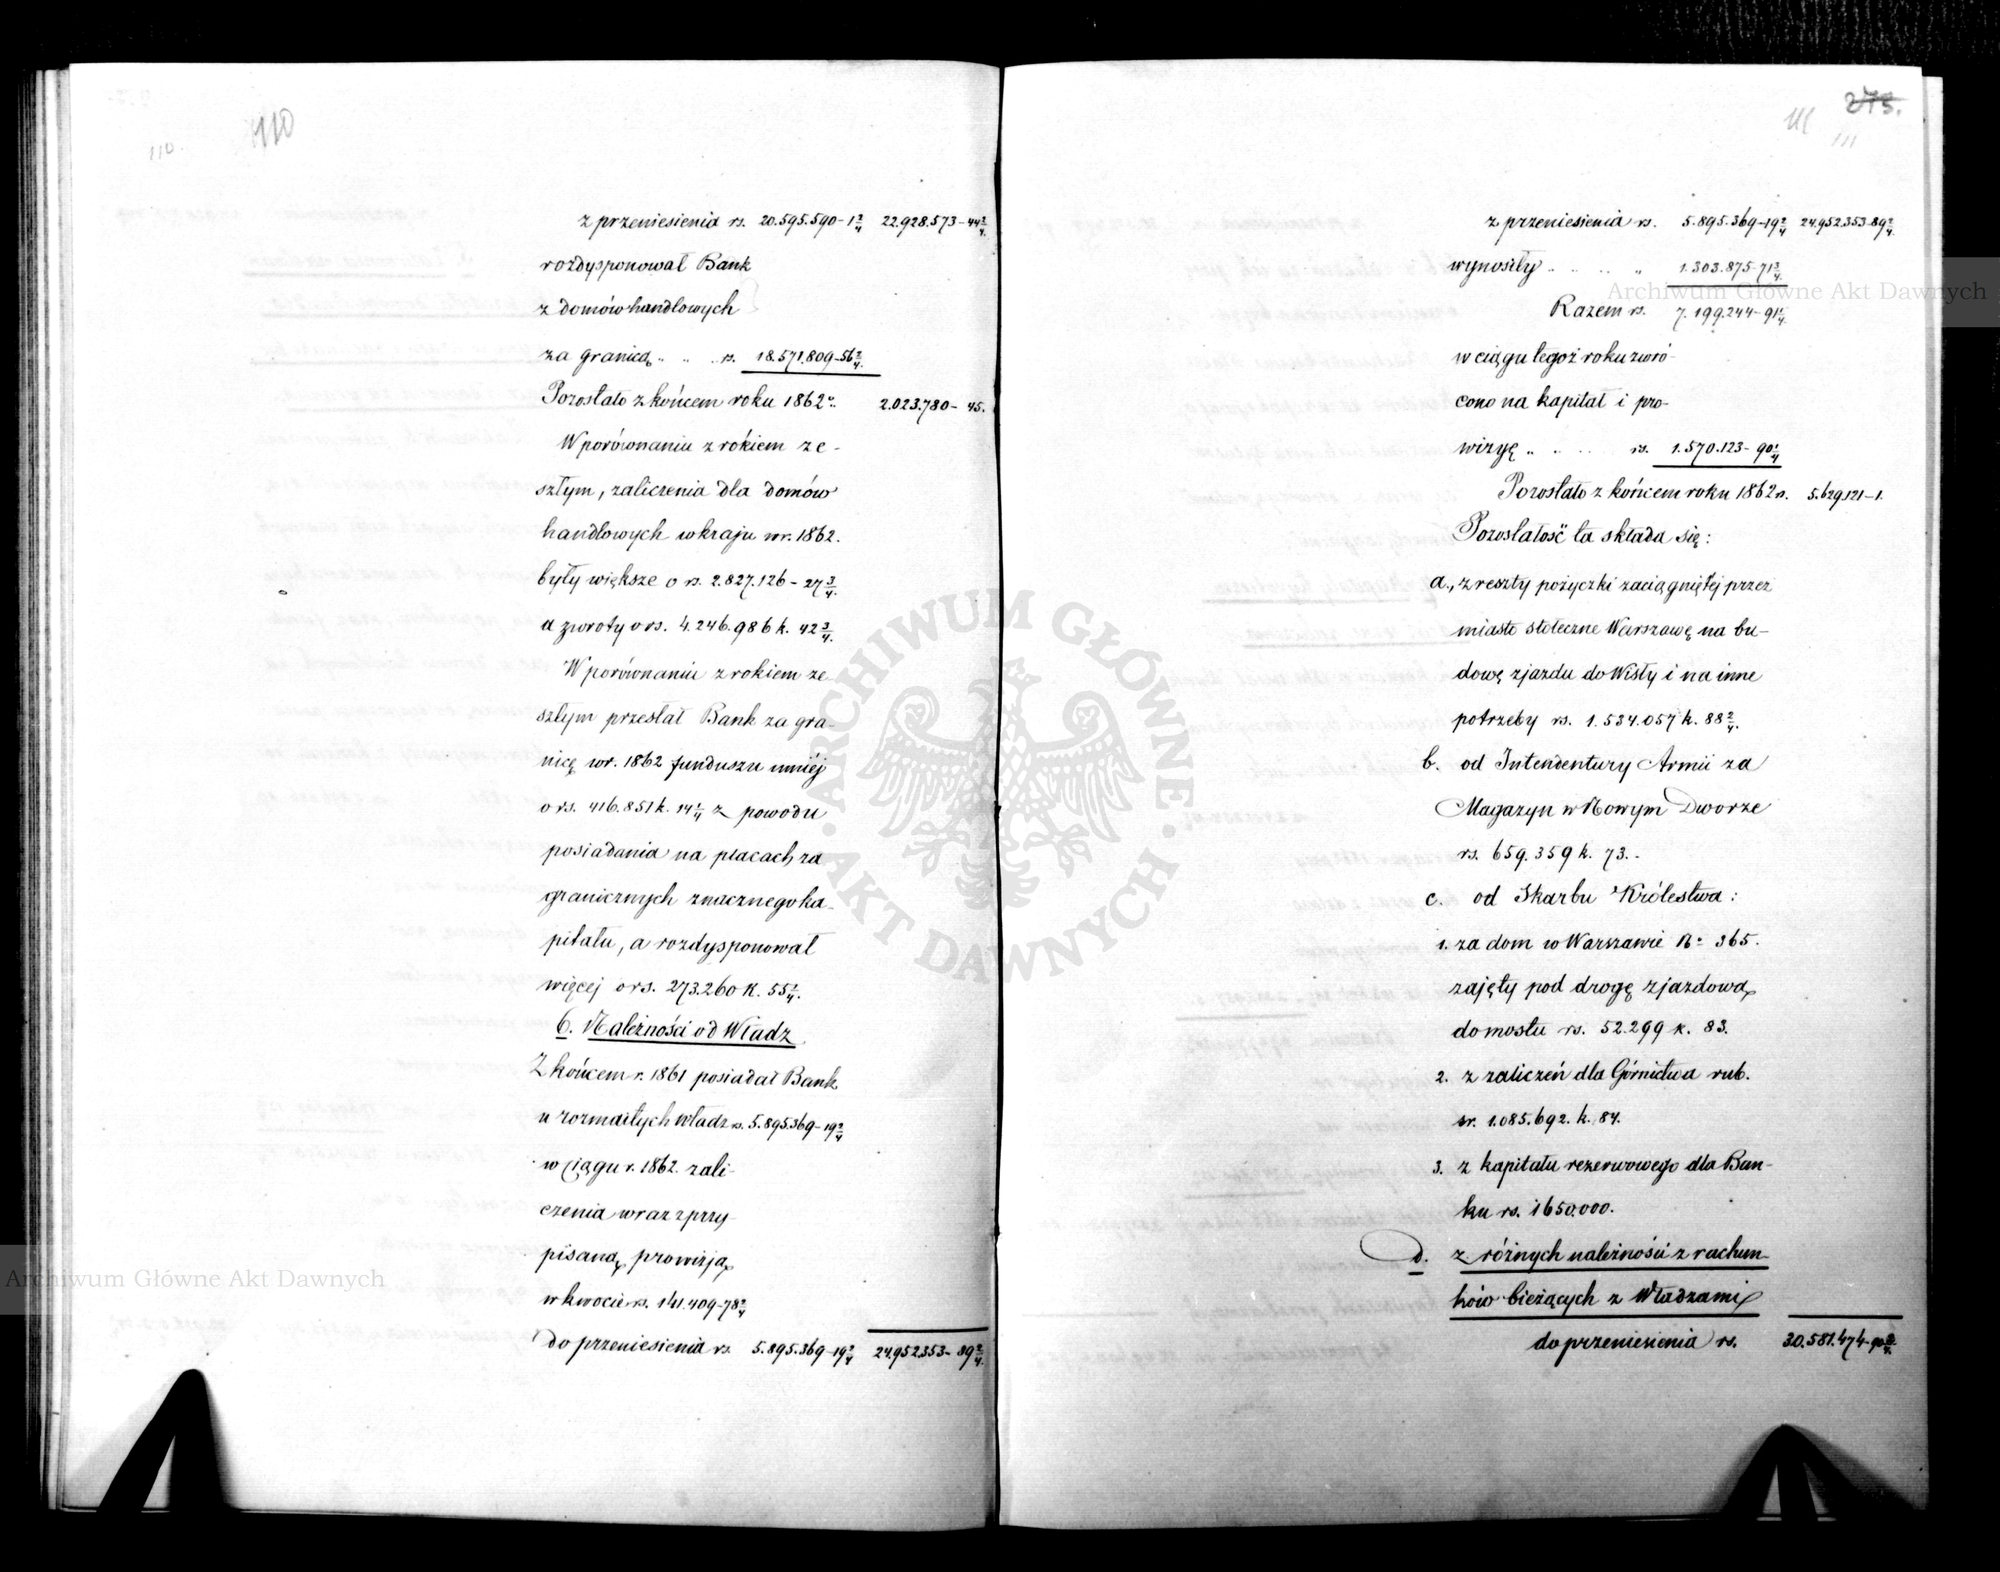 110
110.
z przeniesienia rs. 20.595.590-1 3/4 22.928.573-44 2/4.
rozdysponował Bank
z domów handlowych
za granicą " " rs. 18.571.809-56 3/4.
Pozostało z końcem roku 1862 r. 2.023.780-45.
W porównaniu z rokiem ze-
szłym, zaliczenia dla domów
handlowych w kraju w r. 1862.
były większe o rs. 2.827.126-27 3/4.
a zwroty o rs. 4.246.986 k. 42 3/4.
W porównaniu z rokiem ze-
szłym przesłał Bank za gra-
nicę w r. 1862 funduszu mniéj
o rs. 416.851 k. 14 1/4 z powodu
posiadania na placach za
granicznych znacznego ka-
pitału, a rozdysponował
więcej o rs. 273.260 k. 55 1/4.
6. Należności od Władz
Z końcem r. 1861 posiadał Bank
u rozmaitych Władz rs. 5.895.369-19 2/4
w ciągu r. 1862. zali-
czenia wraz z przy-
pisaną prowizją
w kwocie rs. 141.409-78 2/4
do przeniesienia rs. 5.895.369-19 2/4 24.952.353-89 2/4.
273.
111
111
z przeniesienia rs. 5.895.369-19 2/4 24.952.353-89 2/4.
wynosiły " " " 1.303.875-71 3/4.
Razem rs. 7.199.244-91 1/4.
w ciągu tegoż roku zwró-
cono na kapitał i pro-
wizyę " " rs. 1.570.123-90 1/4
Pozostało z końcem roku 1862 r. 5.629.121-1.
Pozostałość ta składa się:
a., z reszty pożyczki zaciągniętej przez
miasto stołeczne Warszawę na bu-
dowę zjazdu do Wisły i na inne
potrzeby rs. 1.534.057 k. 88 2/4.
b. od Intendentury Armii za
Magazyn w Nowym Dworze
rs. 659.359 k. 73.-
c. od Skarbu Królestwa:
1. za dom w Warszawie No 365.
zajęty pod drogę zjazdową
do mostu rs. 52.299 k. 83.
2. z zaliczeń dla Górnictwa rub.
sr. 1.085.692. k. 84.
3. z kapitału rezerwowego dla Ban-
ku rs. 1650.000.
d. z różnych należności z rachun-
ków bieżących z Władzami
do przeniesienia rs. 30.581.474-90 2/4.
Archiwum Główne Akt Dawnych
Archiwum Główne Akt Dawnych
ARCHIWUM GŁÓWNE
AKT DAWNYCH